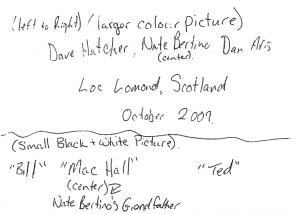 (Left to Right) / larger colour picture)
Dave Hatcher, Nate Bertino Dan Aris
(center).
Loc Lomond, Scotland
October 2009.
(Small Black + White Picture).
"Bill" "Mac Hall" "Ted"
(center)
Nate Bertino's Grandfather